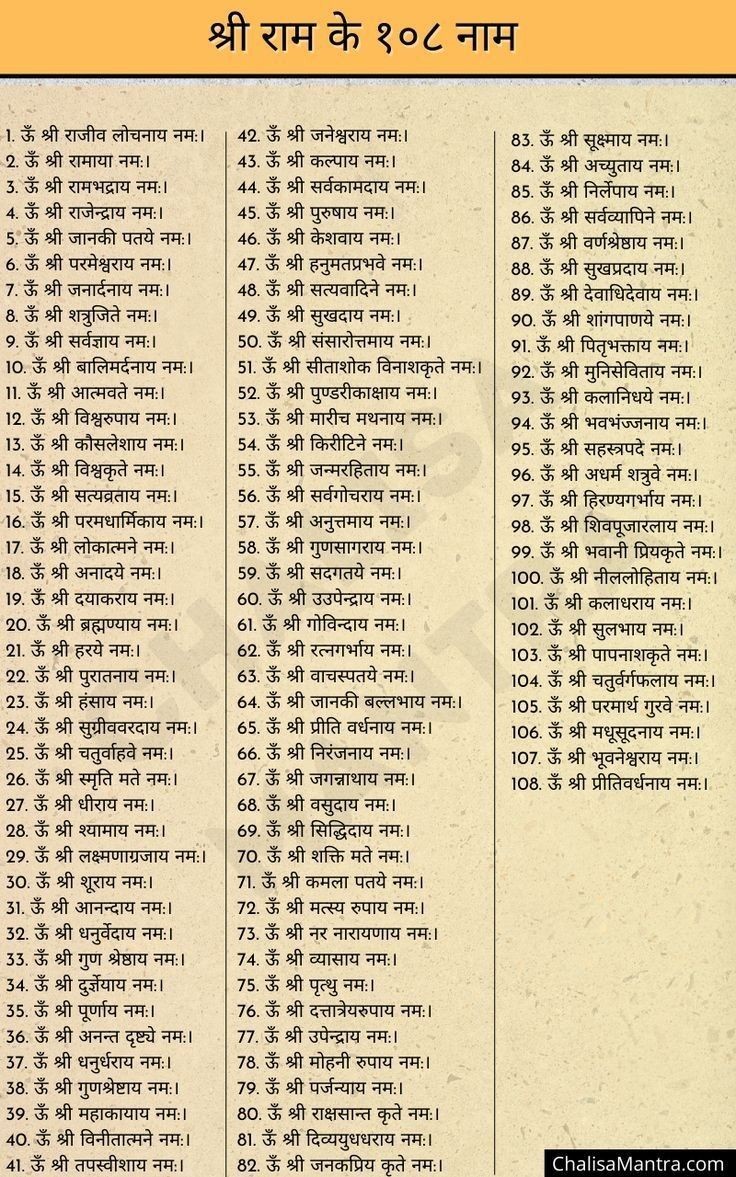 श्री राम के १०८ नाम
1. ऊँ श्री राजीव लोचनाय नम:।
2. ऊँ श्री रामाया नम:।
3. ऊँ श्री रामभद्राय नम:।
4. ऊँ श्री राजेन्द्राय नम:।
5. ऊँ श्री जानकी पतये नम:।
6. ऊँ श्री परमेश्वराय नम:।
7. ऊँ श्री जनार्दनाय नम:।
8. ऊँ श्री शत्रुजिते नम:।
9. ऊँ श्री सर्वज्ञाय नम:।
10. ऊँ श्री बालिमर्दनाय नम:।
11. ऊँ श्री आत्मवते नम:।
12. ऊँ श्री विश्वरुपाय नम:।
13. ऊँ श्री कौसलेशाय नम:।
14. ऊँ श्री विश्वकृते नम:।
15. ऊँ श्री सत्यव्रताय नम:।
16. ऊँ श्री परमधार्मिकाय नम:।
17. ऊँ श्री लोकात्मने नम:।
18. ऊँ श्री अनादये नम:।
19. ऊँ श्री दयाकराय नम:।
20. ऊँ श्री ब्रह्मण्याय नम:।
21. ऊँ श्री हरये नम:।
22. ऊँ श्री पुरातनाय नम:।
23. ऊँ श्री हंसाय नम:।
24. ऊँ श्री सुग्रीववरदाय नम:।
25. ऊँ श्री चतुर्वाहवे नम:।
26. ऊँ श्री स्मृति मते नम:।
27. ऊँ श्री धीराय नम:।
28. ऊँ श्री श्यामाय नम:।
29. ऊँ श्री लक्ष्मणाग्रजाय नम:।
30. ऊँ श्री शूराय नम:।
31. ऊँ श्री आनन्दाय नम:।
32. ऊँ श्री धनुर्वेदाय नम:।
33. ऊँ श्री गुण श्रेष्ठाय नम:।
34. ऊँ श्री दुर्ज्ञेयाय नम:।
35. ऊँ श्री पूर्णाय नम:।
36. ऊँ श्री अनन्त दृष्ट्ये नम:।
37. ऊँ श्री धनुर्धराय नम:।
38. ऊँ श्री गुणश्रेष्टाय नम:।
39. ऊँ श्री महाकायाय नम:।
40. ऊँ श्री विनीतात्मने नम:।
41. ऊँ श्री तपस्वीशाय नम:।
42. ऊँ श्री जनेश्वराय नम:।
43. ऊँ श्री कल्पाय नम:।
44. ऊँ श्री सर्वकामदाय नम:।
45. ऊँ श्री पुरुषाय नम:।
46. ऊँ श्री केशवाय नम:।
47. ऊँ श्री हनुमतप्रभवे नम:।
48. ऊँ श्री सत्यवादिने नम:।
49. ऊँ श्री सुखदाय नम:।
50. ऊँ श्री संसारोत्तमाय नम:।
51. ऊँ श्री सीताशोक विनाशकृते नम:।
52. ऊँ श्री पुण्डरीकाक्षाय नम:।
53. ऊँ श्री मारीच मथनाय नम:।
54. ऊँ श्री किरीटिने नम:।
55. ऊँ श्री जन्मरहिताय नम:।
56. ऊँ श्री सर्वगोचराय नम:।
57. ऊँ श्री अनुत्तमाय नम:।
58. ऊँ श्री गुणसागराय नम:।
59. ऊँ श्री सदगतये नम:।
60. ऊँ श्री उउपेन्द्राय नम:।
61. ऊँ श्री गोविन्दाय नम:।
62. ऊँ श्री रत्नगर्भाय नम:।
63. ऊँ श्री वाचस्पतये नम:।
64. ऊँ श्री जानकी बल्लभाय नम:।
65. ऊँ श्री प्रीति वर्धनाय नम:।
66. ऊँ श्री निरंजनाय नम:।
67. ऊँ श्री जगन्नाथाय नम:।
68. ऊँ श्री वसुदाय नम:।
69. ऊँ श्री सिद्धिदाय नम:।
70. ऊँ श्री शक्ति मते नम:।
71. ऊँ श्री कमला पतये नम:।
72. ऊँ श्री मत्स्य रुपाय नम:।
73. ऊँ श्री नर नारायणाय नम:।
74. ऊँ श्री व्यासाय नम:।
75. ऊँ श्री पृत्थु नम:।
76. ऊँ श्री दत्तात्रेयरुपाय नम:।
77. ऊँ श्री उपेन्द्राय नम:।
78. ऊँ श्री मोहनी रुपाय नम:।
79. ऊँ श्री पर्जन्याय नम:।
80. ऊँ श्री राक्षसान्त कृते नम:।
81. ऊँ श्री दिव्ययुधधराय नम:।
82. ऊँ श्री जनकप्रिय कृते नम:।
83. ऊँ श्री सूक्ष्माय नम:।
84. ऊँ श्री अच्युताय नम:।
85. ऊँ श्री निर्लेपाय नम:।
86. ऊँ श्री सर्वव्यापिने नम:।
87. ऊँ श्री वर्णश्रेष्ठाय नम:।
88. ऊँ श्री सुखप्रदाय नम:।
89. ऊँ श्री देवाधिदेवाय नम:।
90. ऊँ श्री शांगपाणये नम:।
91. ऊँ श्री पितृभक्ताय नम:।
92. ऊँ श्री मुनिसेविताय नम:।
93. ऊँ श्री कलानिधये नम:।
94. ऊँ श्री भवभंज्जनाय नम:।
95. ऊँ श्री सहस्त्रपदे नम:।
96. ऊँ श्री अधर्म शत्रुवे नम:।
97. ऊँ श्री हिरण्यगर्भाय नम:।
98. ऊँ श्री शिवपूजारलाय नम:।
99. ऊँ श्री भवानी प्रियकृते नम:।
100. ऊँ श्री नीललोहिताय नम:।
101. ऊँ श्री कलाधराय नम:।
102. ऊँ श्री सुलभाय नम:।
103. ऊँ श्री पापनाशकृते नम:।
104. ऊँ श्री चतुर्वर्गफलाय नम:।
105. ऊँ श्री परमार्थ गुरवे नम:।
106. ऊँ श्री मधूसूदनाय नम:।
107. ऊँ श्री भूवनेश्वराय नम:।
108. ऊँ श्री प्रीतिवर्धनाय नम:।
ChalisaMantra.com